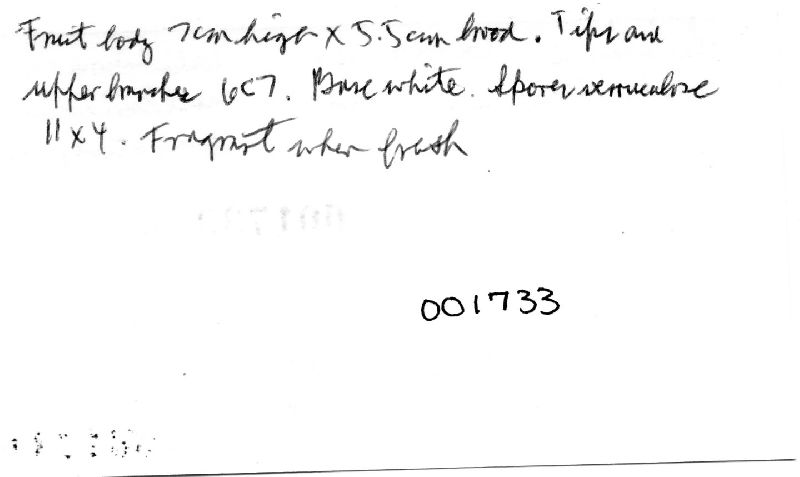 Fruit body 7cm high x 5.5cm broad. Tips and
upper branches 6C7. Base white. Spores verruculose
11 x 4. Fragrant when fresh
001733